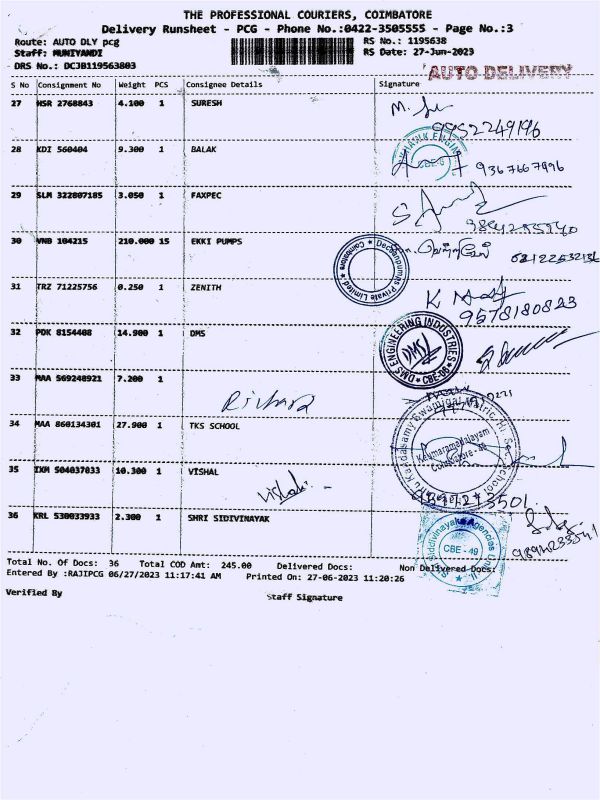 THE PROFESSIONAL COURIERS, COIMBATORE
Delivery Runsheet - PCG - Phone No.:0422-3505555 - Page No.:3
Route: AUTO DLY pcg RS No.: 1195638
Staff: MUNIYANDI RS Date: 27-Jun-2023
DRS No.: DCJB119563803
AUTO DELIVERY
S No Consignment No Weight PCS Consignee Details Signature
27 HSR 2768843 4.100 1 SURESH
9952249196
28 KDI 560404 9.300 1 BALAK
9367667996
29 SLM 322807185 3.050 1 FAXPEC
30 VNB 104215 210.000 15 EKKI PUMPS
Deccan Pumps Private Limited ★ Coimbatore ★
31 TRZ 71225756 0.250 1 ZENITH
9578180823
32 PDK 8154408 14.900 1 DMS
DMS ENGINEERING INDUSTRIES ★ CBE-06 ★
DMS
33 MAA 569248921 7.200 1
Richard
34 MAA 860134301 27.900 1 TKS SCHOOL
35 IXM 504037033 10.300 1 VISHAL
Vishal
36 KRL 530033933 2.300 1 SHRI SIDIVINAYAK
CBE - 49
Total No. Of Docs: 36 Total COD Amt: 245.00 Delivered Docs: Non Delivered Docs:
Entered By :RAJIPCG 06/27/2023 11:17:41 AM Printed On: 27-06-2023 11:20:26
Verified By Staff Signature